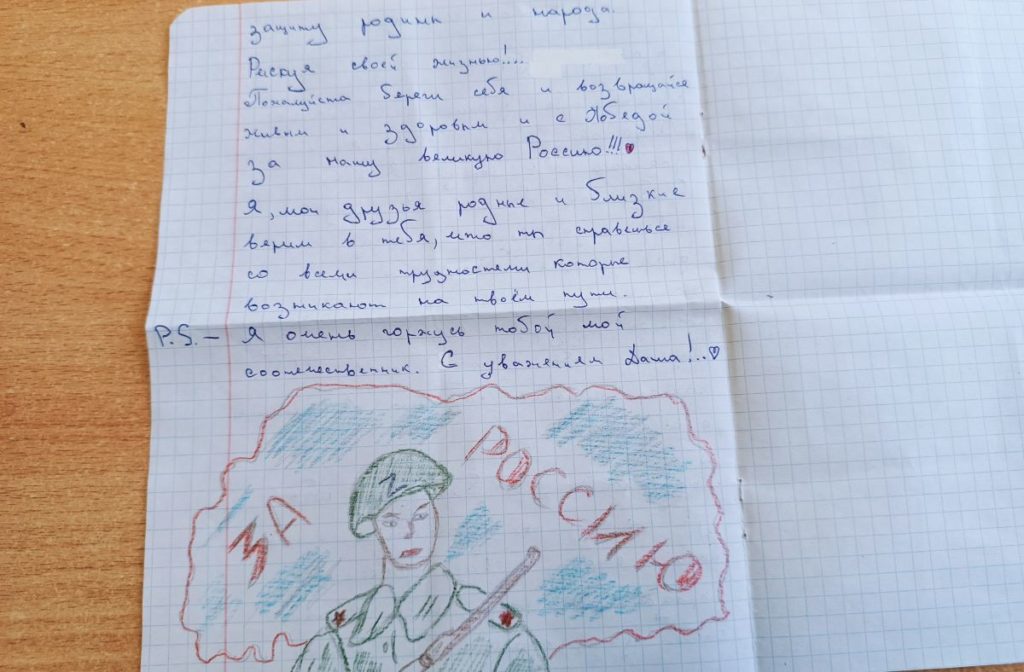 защиту родины и народа.
Рискуя своей жизнью!...
Пожалуйста береги себя и возвращайся
живым и здоровым и с Победой
за нашу великую Россию!!!
Я, мои друзья родные и близкие
верим в тебя, что ты справишься
со всеми трудностями которые
возникают на твоём пути.
P.S. – Я очень горжусь тобой мой
соотечественник. С уважением Даша!..
ЗА РОССИЮ
Z